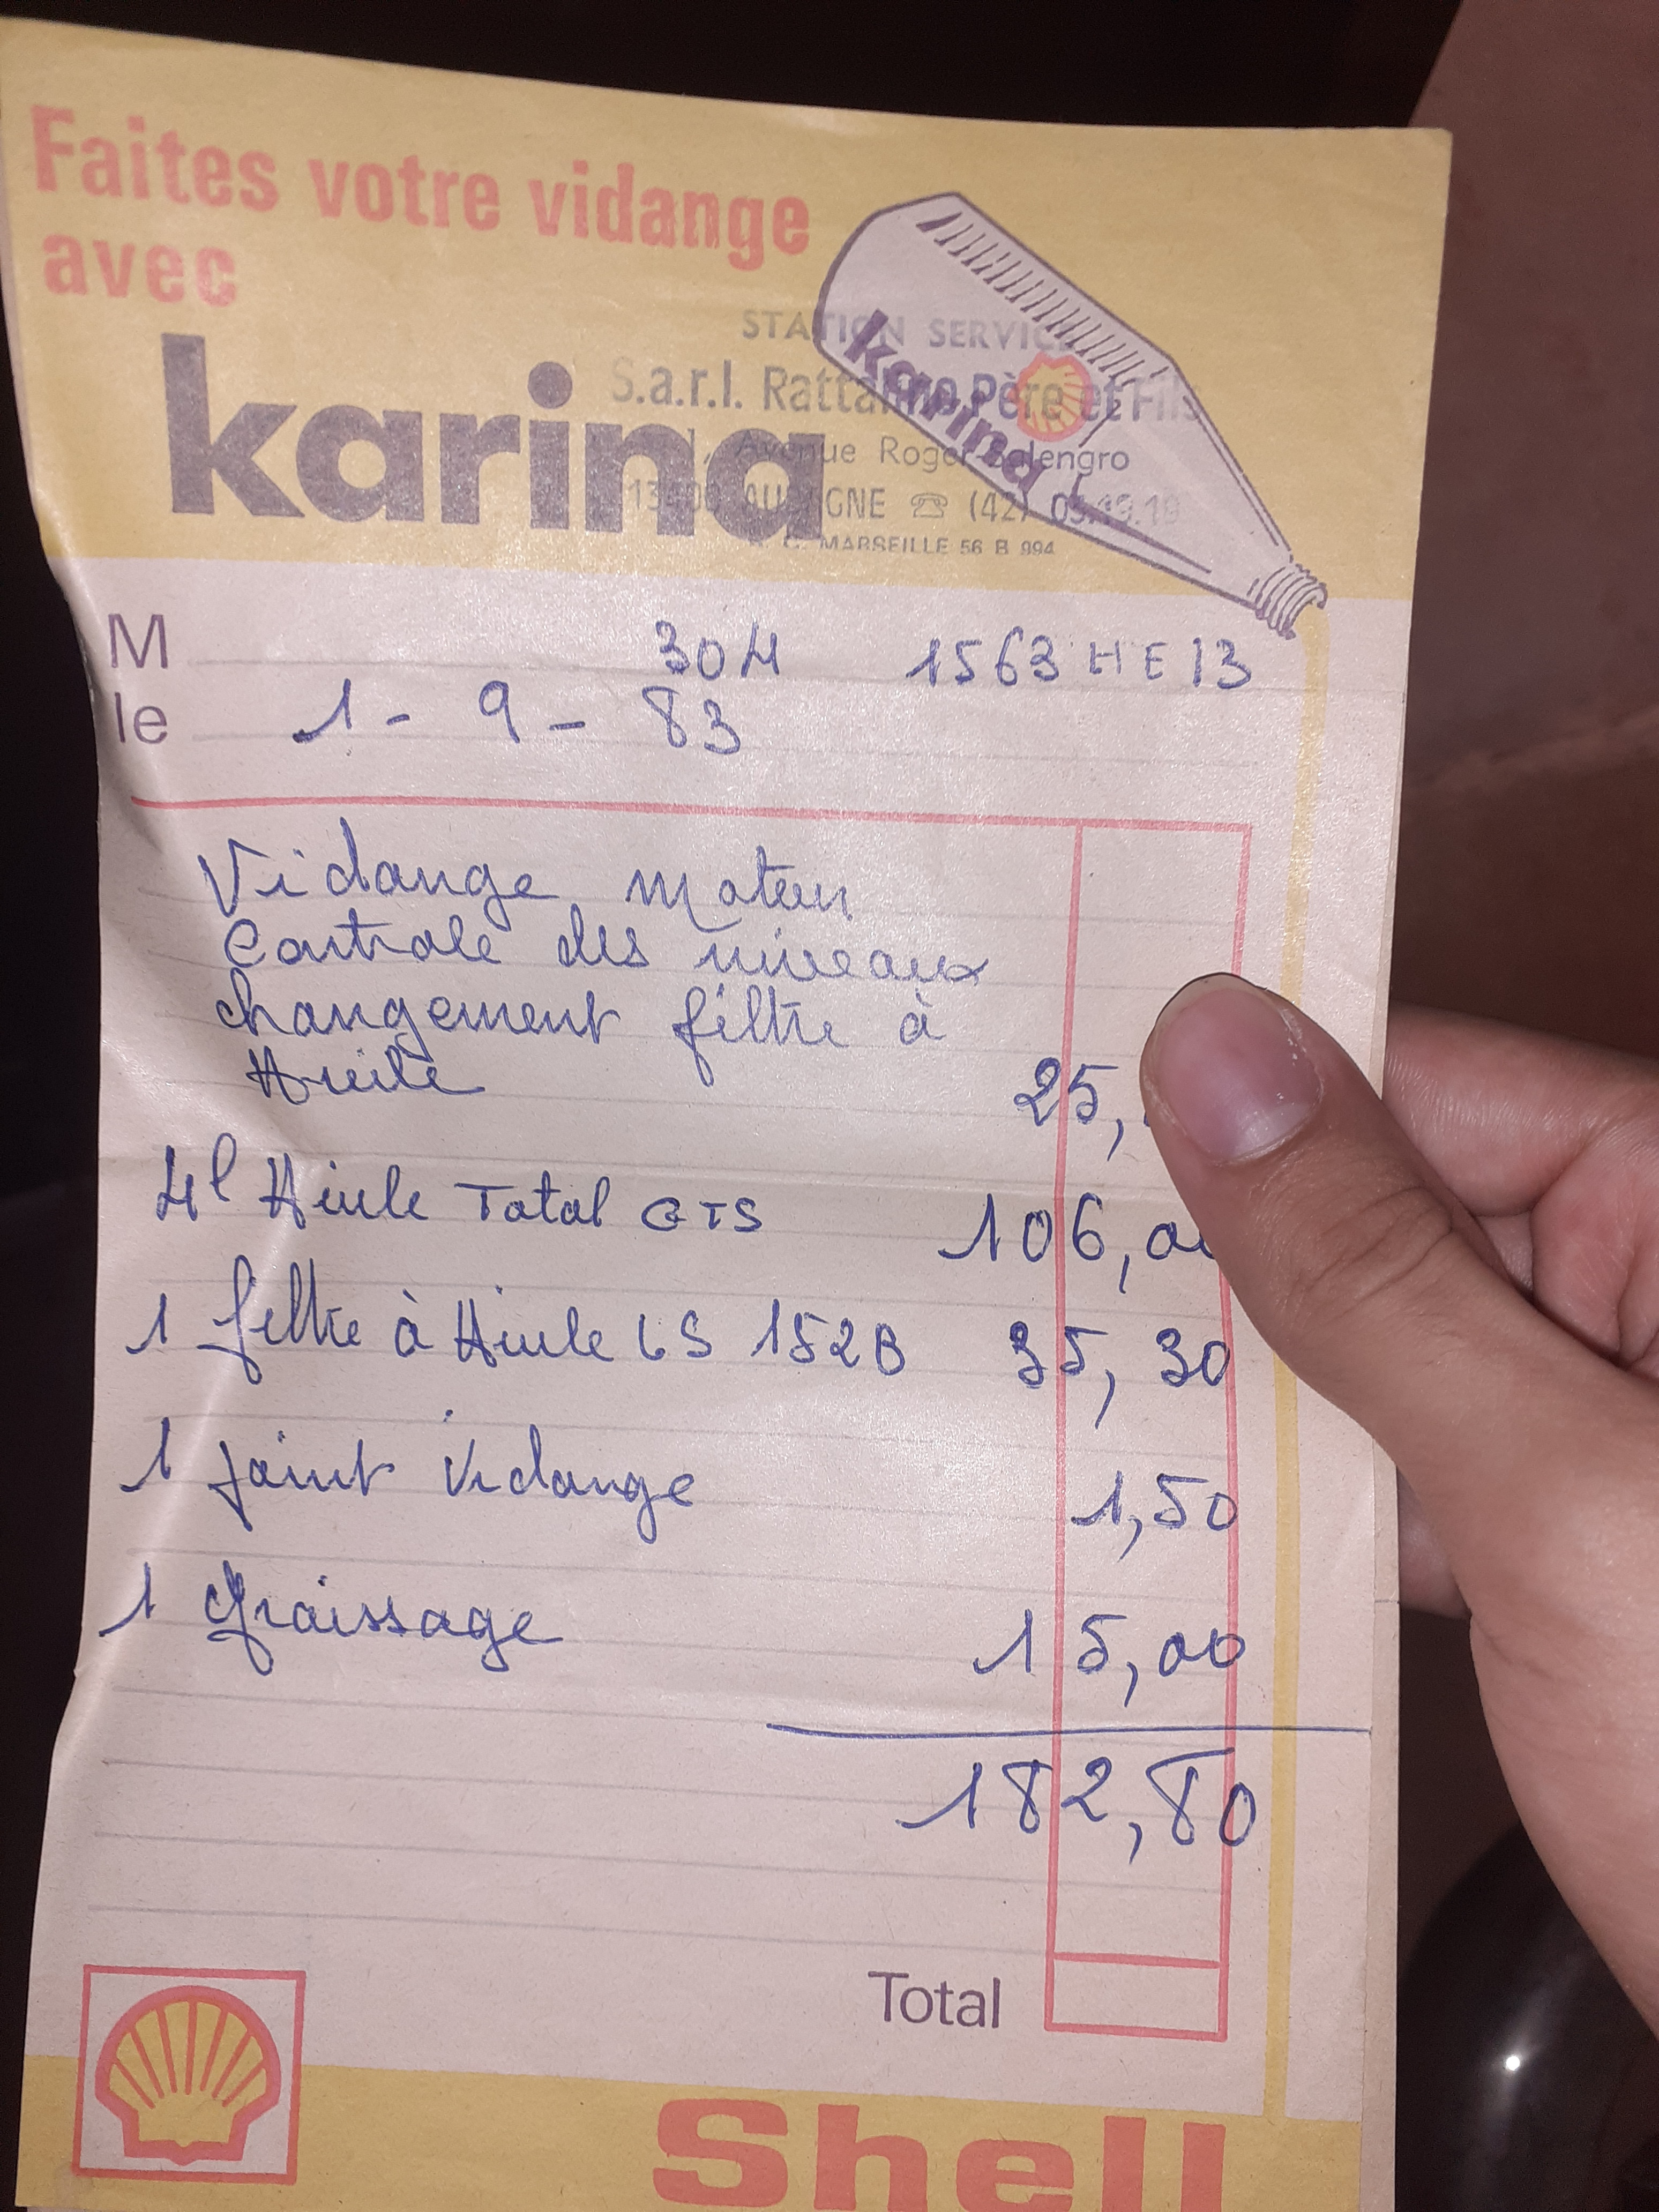 Faites votre vidange
avec
karina
karina
STATION SERVICE
S.a.r.l. Père et Fils
1, Avenue Roger Salengro
13400 AUBAGNE ☎ (42) 03.19.19
R. C. MARSEILLE 56 B 994
M 304 1563 HE 13
le 1 - 9 - 83
Vidange moteur
Controle des niveaux
changement filtre à
Huile 25,
4l Huile Total GTS 106,00
1 filtre à Huile LS 152B 35,30
1 joint vidange 1,50
1 graissage 15,00
182,80
Total
Shell